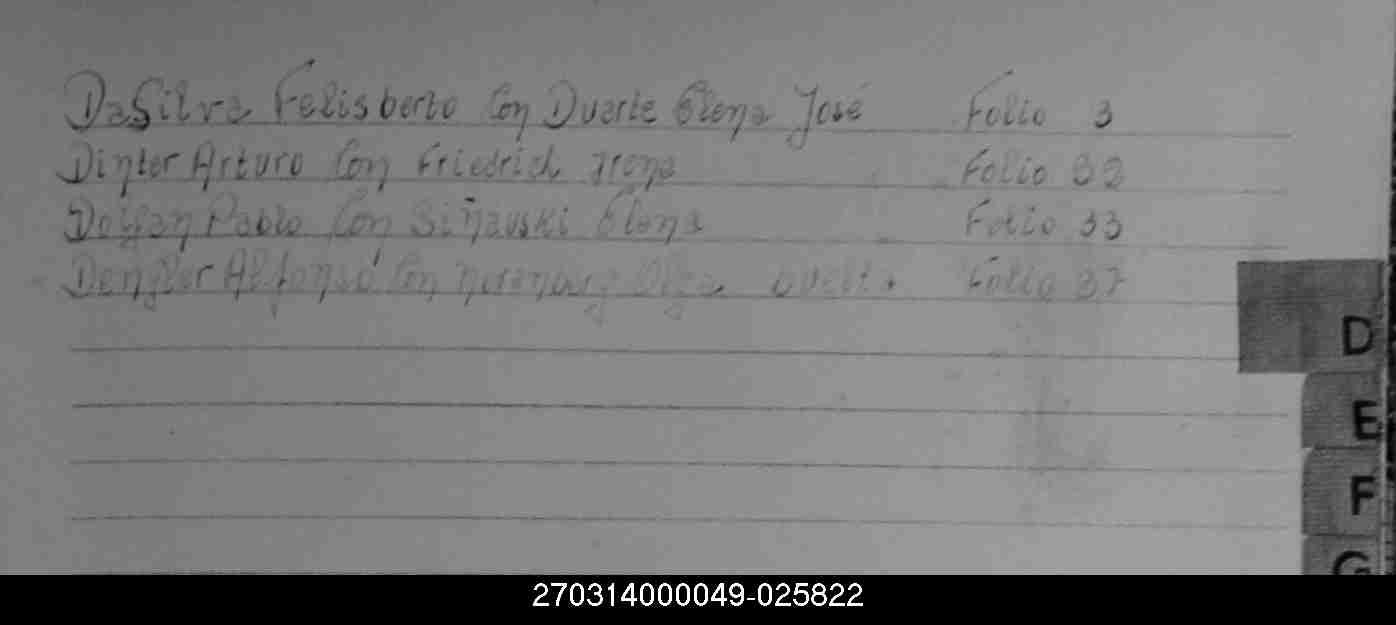 DaSilva Felisberto Con Duarte Elena José Folio 3
Dinter Arturo Con Friedrich Irena Folio 32
Pablo Con Elena Folio 33
Dengler Alfonso Con Olga Folio 37
D
E
F
G
270314000049-025822